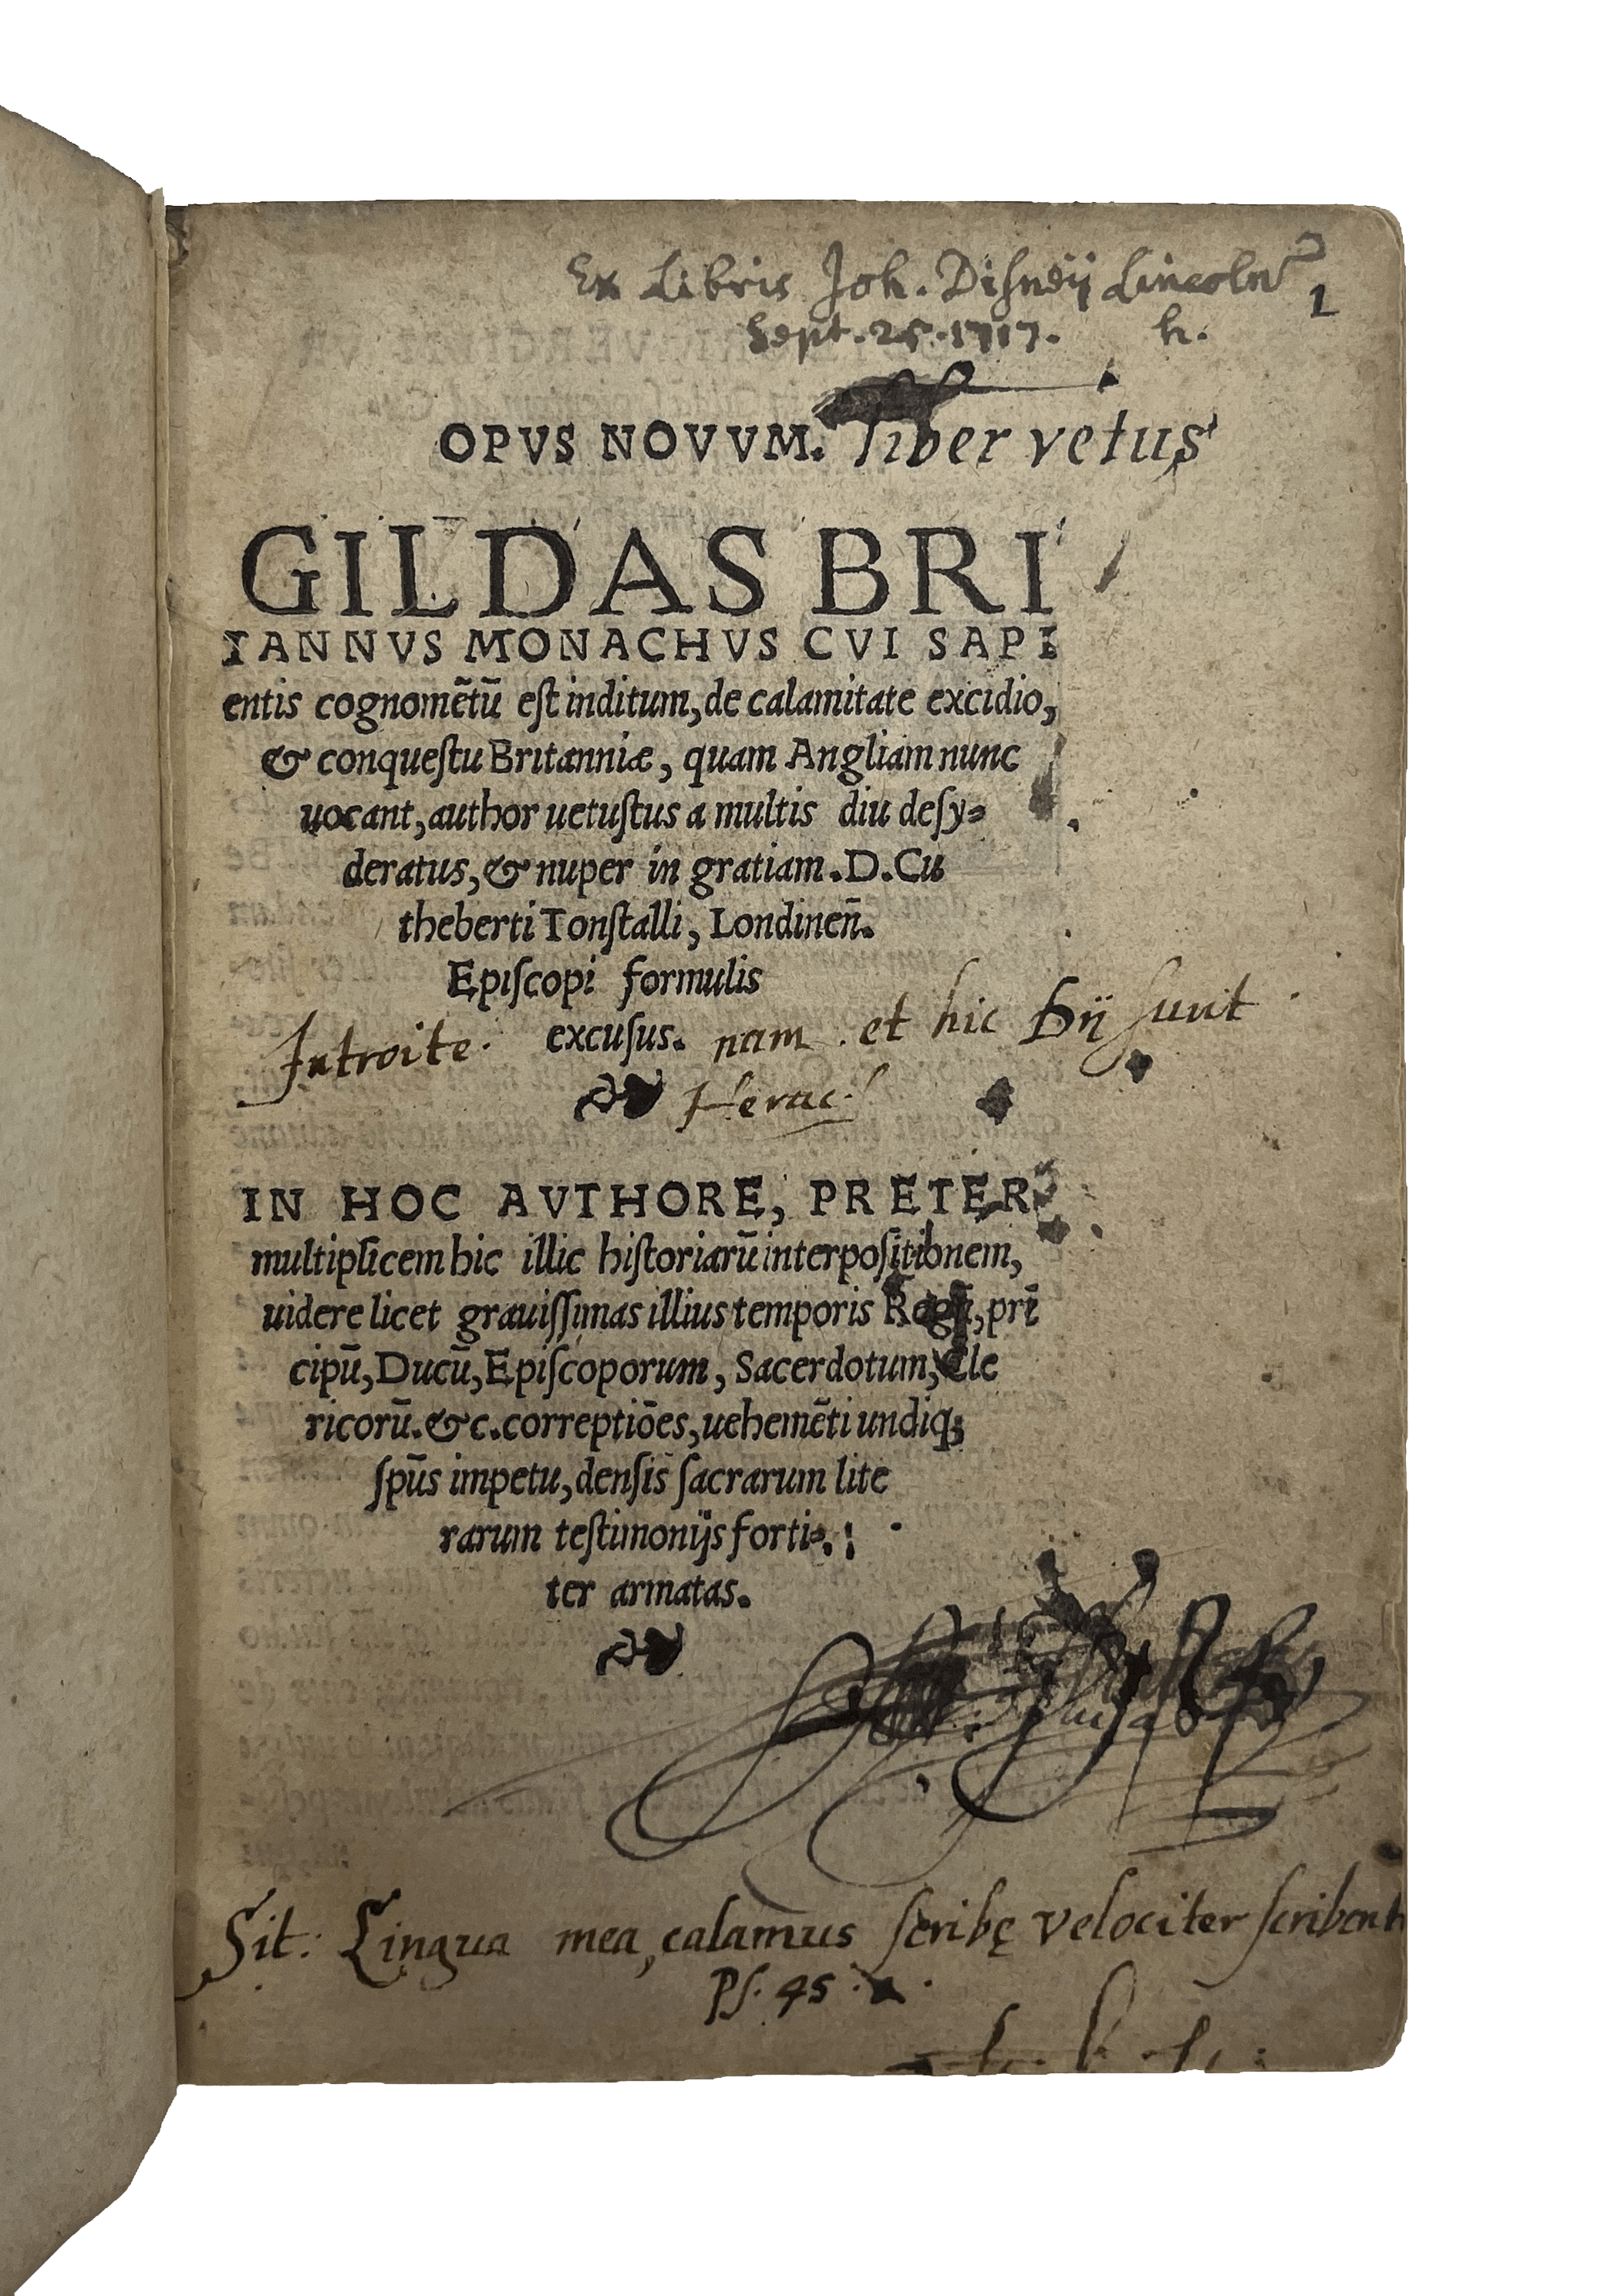 Ex Libris Joh. Disneij Lincoln
1
Sept. 25. 1717. h.
OPVS NOVVM. liber vetus
GILDAS BRI
TANNVS MONACHVS CVI SAPI
entis cognomẽtũ eſt inditum, de calamitate excidio,
& conqueſtu Britanniæ, quam Angliam nunc
uocant, author uetuſtus a multis diu deſy⸗
deratus, & nuper in gratiam. D. Cu
theberti Tonſtalli, Londineñ.
Epiſcopi formulis
excuſus.
Introite. nam et hic Dij sunt
❧ Herac.
IN HOC AVTHORE, PRETER
multiplicem hic illic hiſtoriarũ interpoſitionem,
uidere licet grauiſſimas illius temporis Regũ, prĩ
cipũ, Ducũ, Epiſcoporum, Sacerdotum, Cle
ricorũ. &c. correptiões, uehemẽti undiqꝫ
ſpũs impetu, denſis ſacrarum lite
rarum teſtimonijs forti⸗
ter armatas.
❧
Sit: Lingua mea, calamus ſcribę velociter ſcribent
Pſ. 45